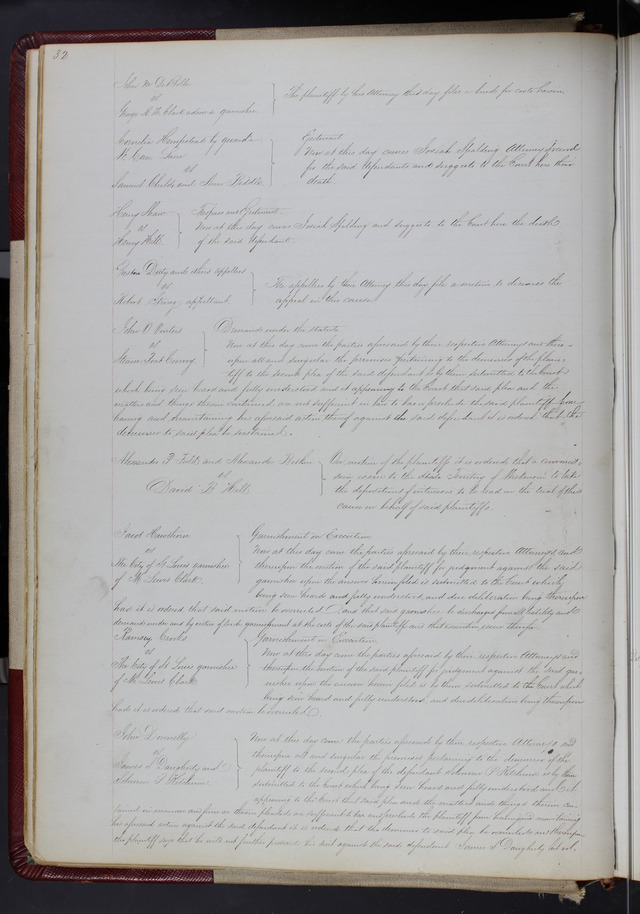 32
John M
vs
George R. H. Clark adm &c garnishee
The plaintiff by his Attorney this day files a bond for costs herein
Cornelia Hempstead by guardn
vs
Samuel Childs and
Ejectment
Now at this day comes Josiah Spalding Attorney
for the said Defendants and suggests to the Court here their
death
Henry Shaw
vs
Henry Hall
Trespass and Ejectment
Now at this day comes Josiah Spalding and suggests to the Court here the death
of the said Defendant
and others appellees
vs
Robert appellant
The appellees by their Attorney this day file a motion to dismiss the
appeal in this cause
John D
vs
Steam Ferry
Demands under the statute
Now at this day come the parties aforesaid by their respective Attorneys and there
upon all and singular the premises pertaining to the demurrer of the plain
tiff to the second plea of the said defendant is by them submitted to the Court
which being seen heard and fully understood and it appearing to the Court that said plea and the
matters and things therein contained are not sufficient in law to bar or preclude the said plaintiff from
having and maintaining his aforesaid action thereof against the said defendant it is ordered that the
demurrer to said plea be sustained.
Alexander P. Field and Alexander
vs
David B Hill
On motion of the plaintiffs it is ordered that a commis
sion issue to the Territory of Wisconsin to take
the depositions of witnesses to be read in the trial of this
cause on behalf of said plaintiffs.
Jacob Hawthorn
vs
The City of St Louis garnishee
of M. Lewis Clark
Garnishment on Execution
Now at this day come the parties aforesaid by their respective Attorneys and
thereupon the motion of the said plaintiff for judgment against the said
garnishee upon the answer herein filed is submitted to the Court which
being seen heard and fully understood and due deliberation being thereupon
had it is ordered that said motion be overruled and that said garnishee be discharged from all liability and
demands under and by virtue of said garnishment at the costs of the said plaintiff and that execution issue therefor
Ramsey Crooks
vs
The City of St Louis garnishee
of M. Lewis Clark
Garnishment on Execution
Now at this day come the parties aforesaid by their respective Attorneys and
thereupon the motion of the said plaintiff for judgment against the said gar
nishee upon the answer herein filed is by them submitted to the Court which
being seen heard and fully understood and due deliberation being thereupon
had it is ordered that said motion be overruled.
John Donnelly
vs
James S Daugherty and
Solomon P Ketchum
Now at this day come the parties aforesaid by their respective Attorneys and
thereupon all and singular the premises pertaining to the demurrer of the
plaintiff to the second plea of the defendant Solomon P Ketchum is by them
submitted to the Court which being seen heard and fully understood and it
appearing to the Court that said plea and the matters and things therein con
tained in manner and form as therein pleaded are sufficient to bar and preclude the plaintiff from having and maintaining
his aforesaid action against the said defendant it is ordered that the demurrer to said plea be overruled and thereupon
the plaintiff says that he will not further prosecute his suit against the said defendant James S Daugherty